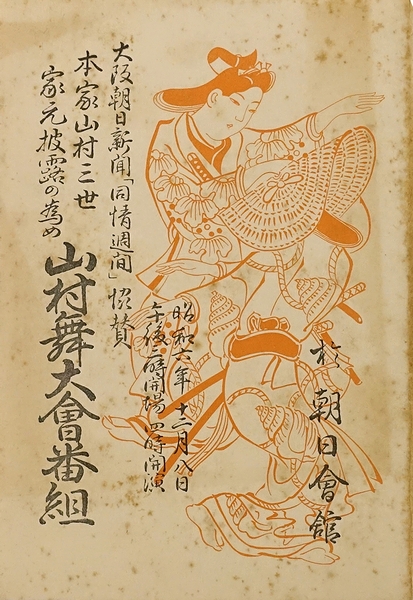 大阪朝日新聞「同情週間」協賛
本家山村三世
家元披露の為め
山村舞大會番組
昭和六年十二月八日
午後二時開場四時開演
於朝日會舘